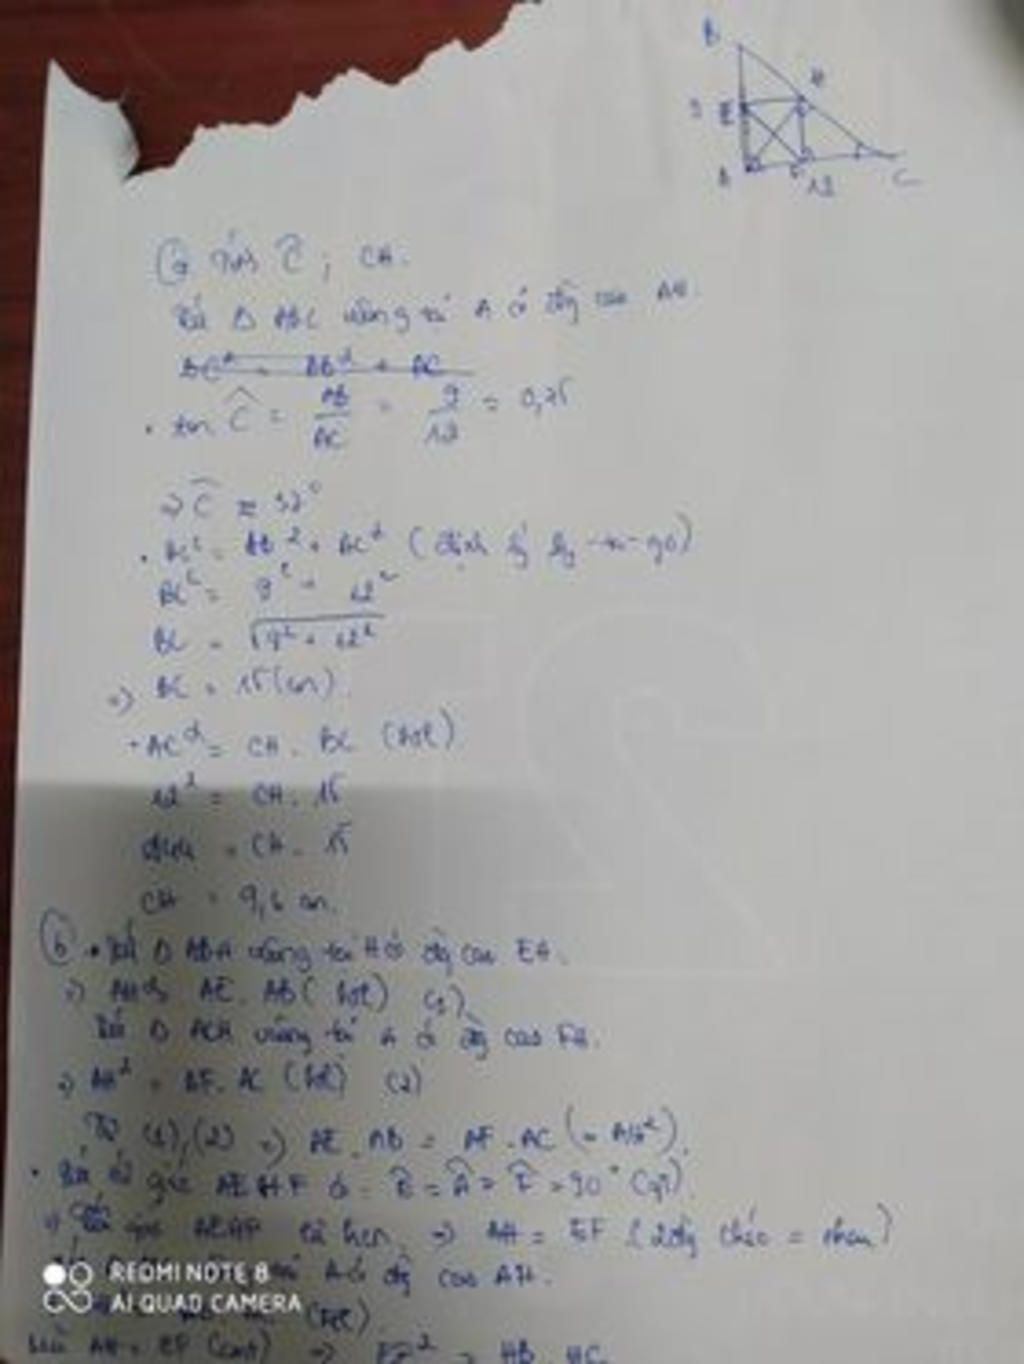 B
H
9 E
A F 12 C
a Tính Ĉ, CH.
Xét Δ ABC vuông tại A có đg cao AH.
BC² = AB² + AC
• tan Ĉ = AB/AC = 9/12 = 0,75
=> Ĉ ≈ 37°
• BC² = AB² + AC² (định lý py-ta-go)
BC² = 9² + 12²
BC = √9² + 12²
=> BC = 15 (cm).
- AC² = CH . BC (htl)
12² = CH . 15
= CH . 15
CH = 9,6 cm.
b • Xét Δ ABH vuông tại H có đg cao EH.
=> AH² = AE . AB (htl) (1)
Xét Δ ACH vuông tại H có đg cao FH.
=> AH² = AF . AC (htl) (2)
Từ (1), (2) => AE . AB = AF . AC (= AH²).
• Xét tứ giác AEHF có: Ê = Â = F̂ = 90° (gt)
=> tứ giác AEHF là hcn => AH = EF (2 đg chéo = nhau)
vuông tại A có đg cao AH.
(htl)
Mà AH = EF (cmt) => EF² = HB . HC
REDMI NOTE 8
AI QUAD CAMERA